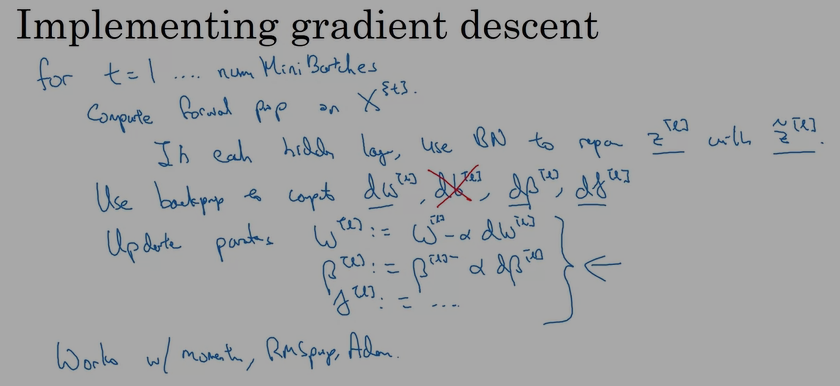 Implementing gradient descent
for t = 1 .... num Mini Batches
Compute forward prop on X^{t}.
In each hidden layer, use BN to repar z^[l] with z̃^[l].
Use backprop to compute dw^[l], db^[l], dβ^[l], dγ^[l]
Update parameters w^[l] := w^[l] - α dw^[l]
β^[l] := β^[l] - α dβ^[l]
γ^[l] := ....
Works w/ momentum, RMSprop, Adam.